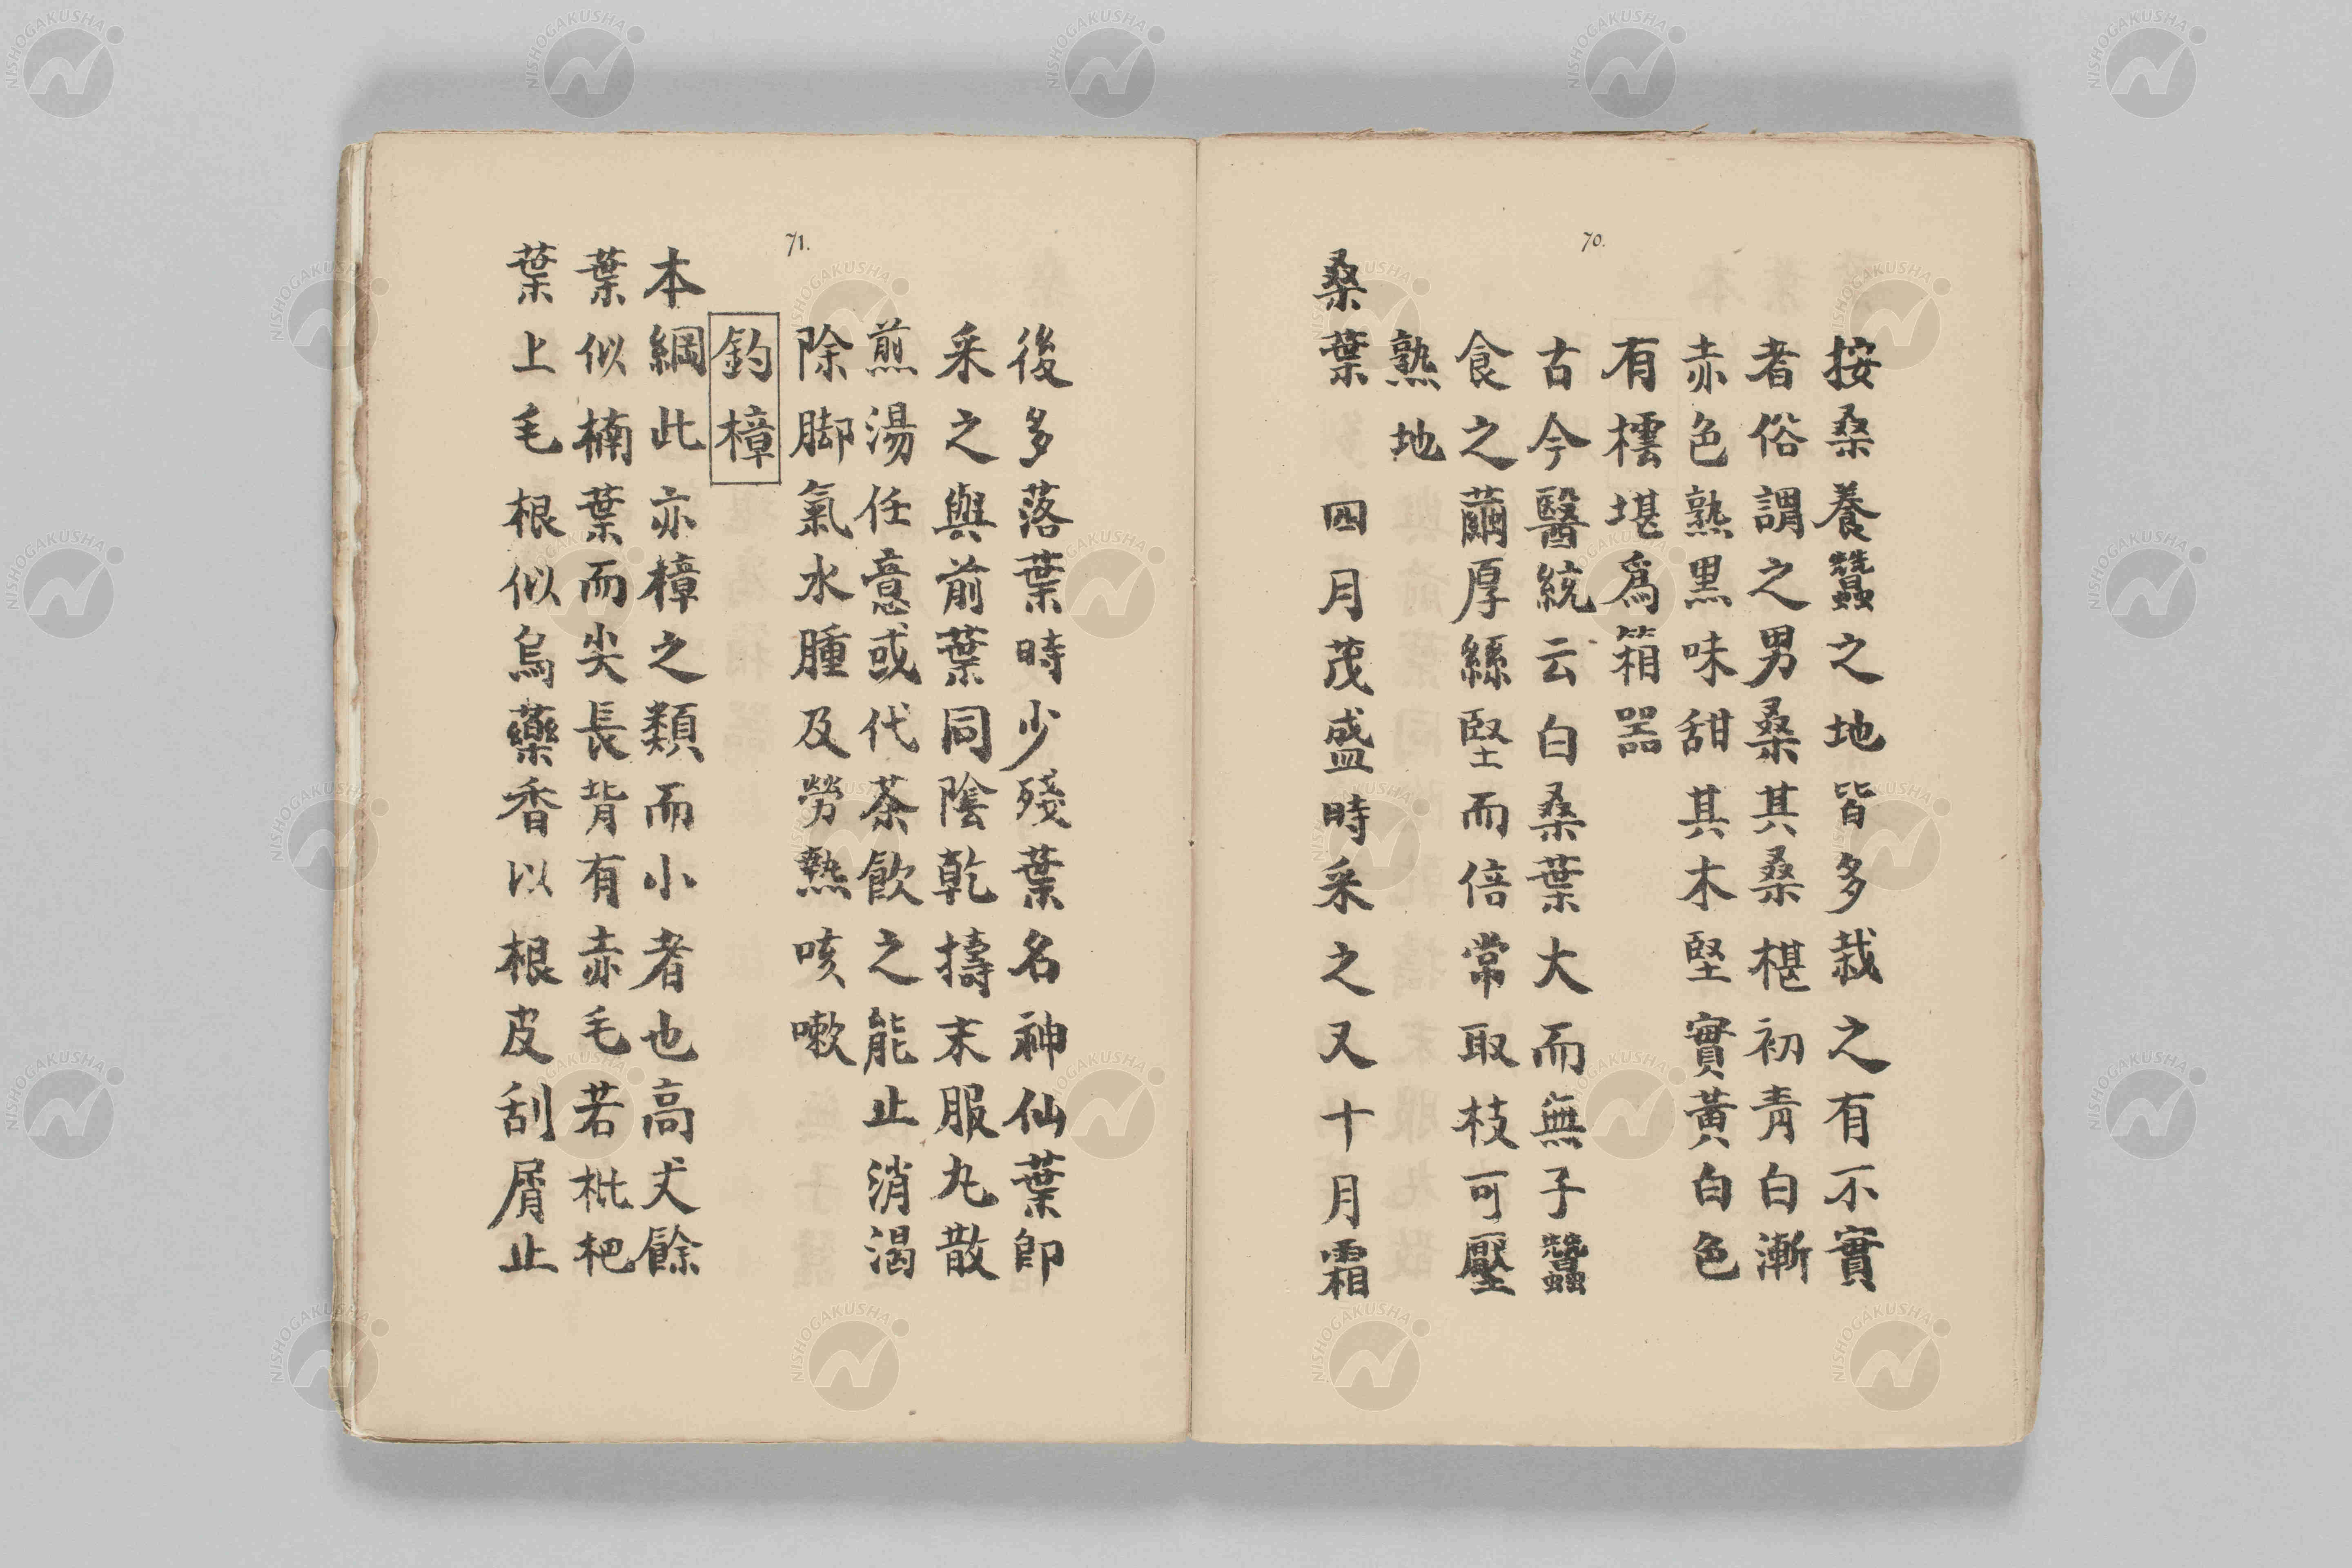 70.
按桑養蠶之地皆多栽之有不實
者俗謂之男桑其桑椹初青白漸
赤色熟黒味甜其木堅實黄白色
有橒堪爲箱器
古今醫統云白桑葉大而無子蠶
食之繭厚絲堅而倍常取枝可壓
熟地
桑葉 四月茂盛時采之又十月霜
71.
後多落葉時少殘葉名神仙葉卽
采之與前葉同陰乾擣末服丸散
煎湯任意或代茶飲之能止消渴
除脚氣水腫及勞熱咳嗽
釣樟
本綱此亦樟之類而小者也高𠀋餘
葉似楠葉而尖長背有赤毛若枇杷
葉上毛根似烏藥香以根皮刮屑止
NISHOGAKUSHA